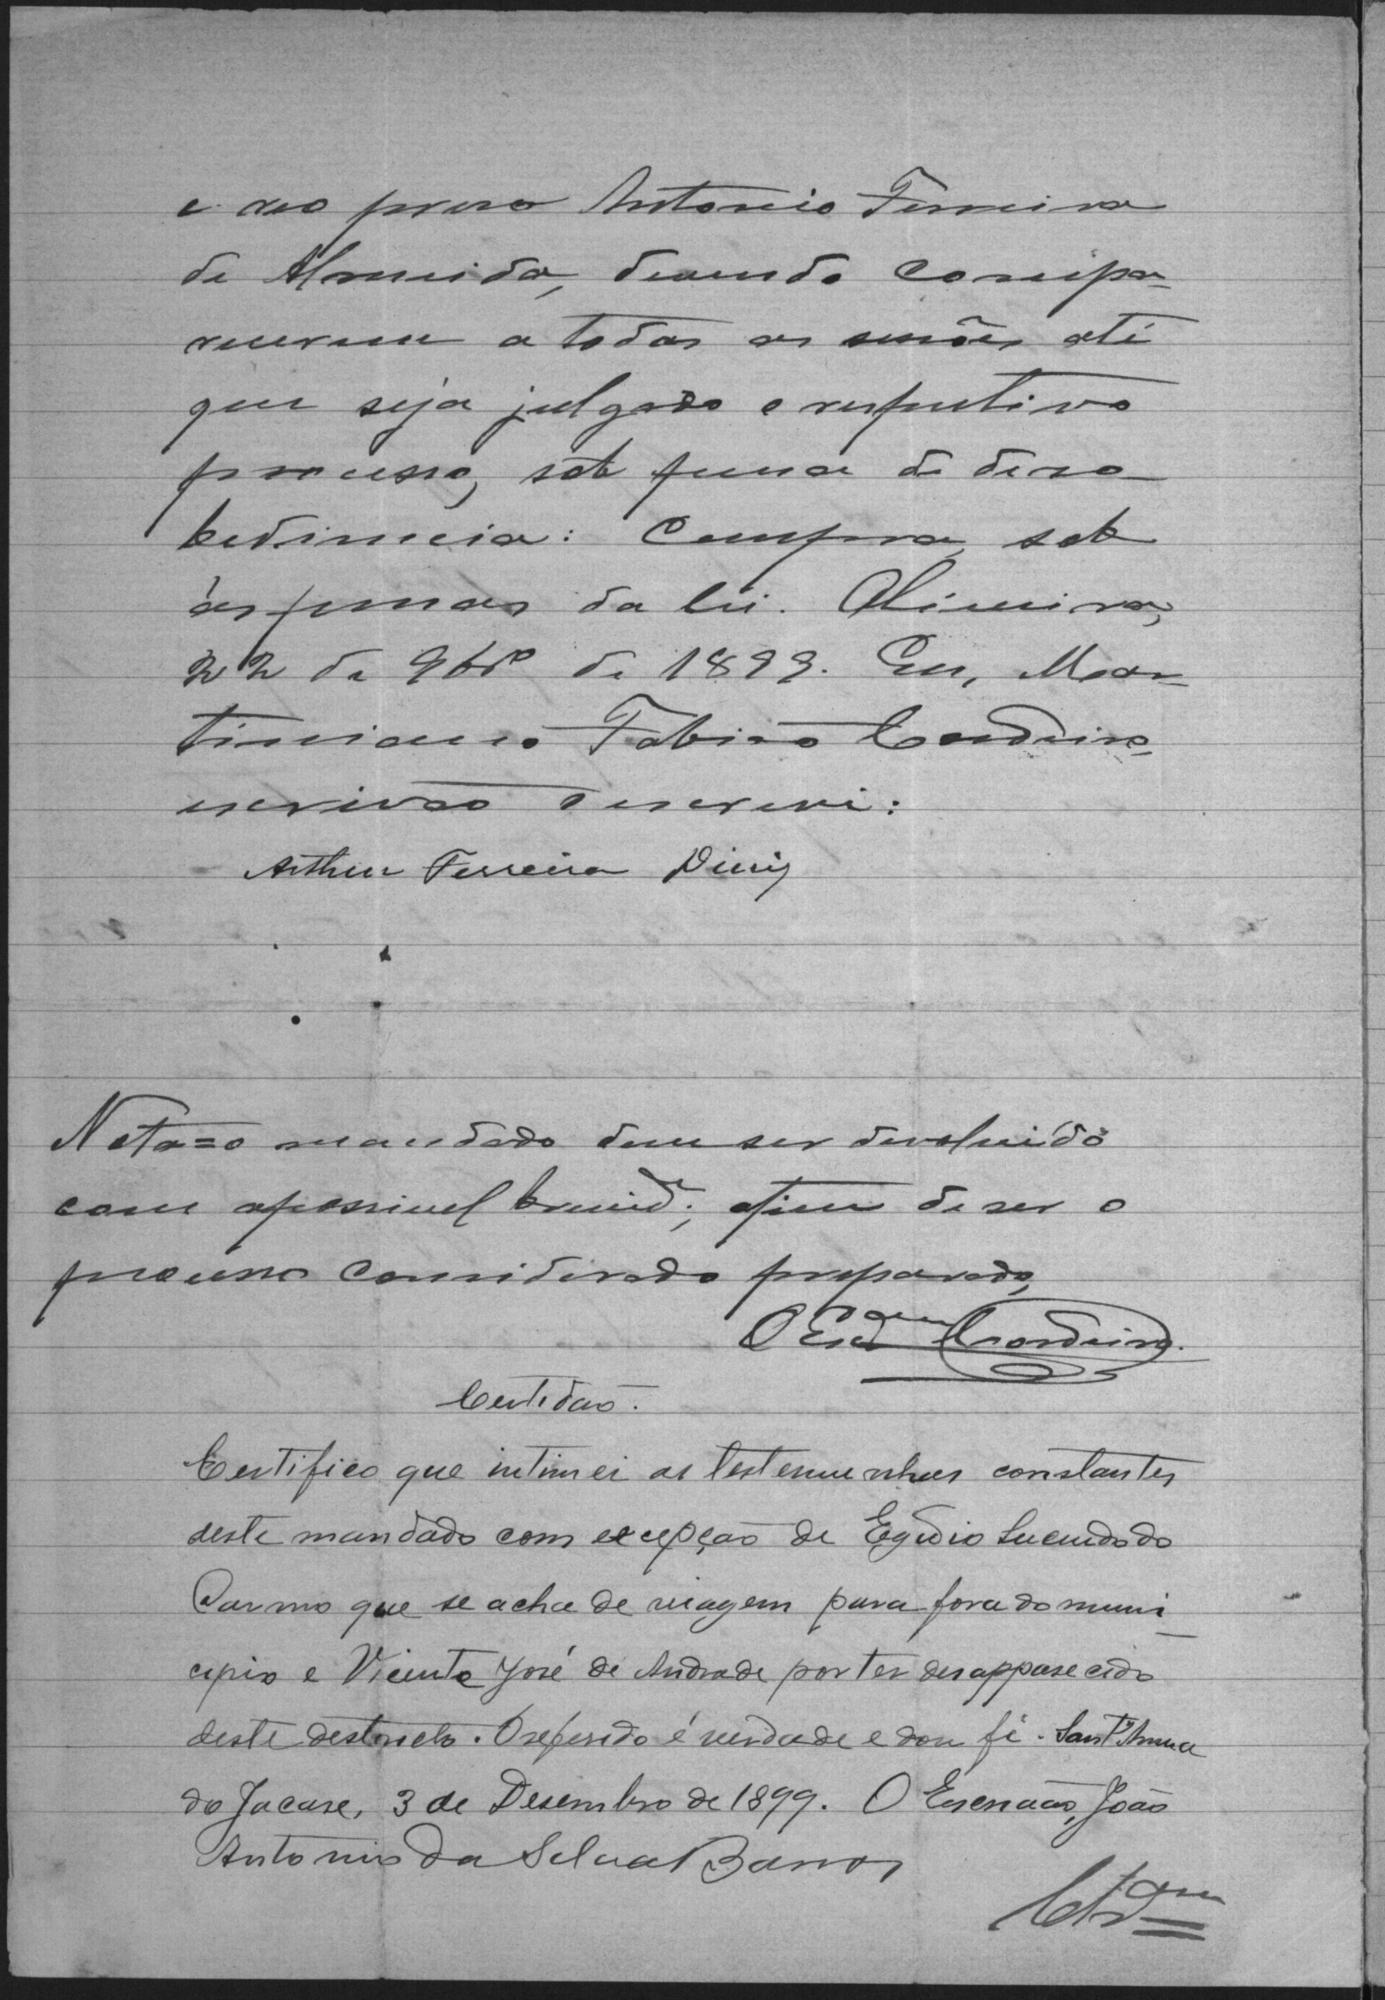 e reo preso Antonio Ferreira
de Almeida, devendo compa-
recerem a todas as sessões até
que seja julgado o respectivo
processo, sob pena de deso-
bediencia: Cumpra, sob
as penas da lei. Oliveira,
22 de 9brº de 1899. Eu, Mar-
tiniano Fabião Cordeiro,
escrivão o escrevi:
Arthur Ferreira Diniz
Nota=o mandado deve ser devolvido
com apossivel brevidᵉ, afim de ser o
processo considerado preparado,
O Escᵃᵐ Cordeiro.
Certidão.
Certifico que intimei as testemunhas constantes
deste mandado com excepção de Egidio Lucindo do
Carmo que se acha de viagem para fora do muni-
cipio e Vicente José de Andrade por ter desapparecido
deste destricto. O referido é verdade e dou fé. Sant'Anna
do Jacare, 3 de Desembro de 1899. O Escrivão, João
Antonio da Silva Barros